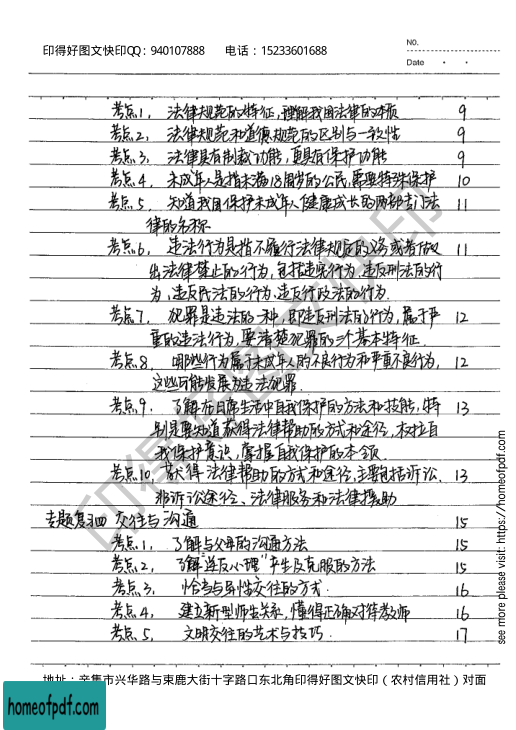 印得好图文快印QQ：940107888 电话：15233601688
NO.
Date
考点1、法律规范的特征，理解我国法律的本质 9
考点2、法律规范和道德规范的区别与一致性 9
考点3、法律具有制裁功能，更具有保护功能 9
考点4、未成年人是指未满18周岁的公民，需要特殊保护 10
考点5、知道我国保护未成年人健康成长的两部专门法 11
律的名称
考点6、违法行为是指不履行法律规定的义务或者做 11
出法律禁止的行为，包括违宪行为、违反刑法的行
为、违反民法的行为、违反行政法的行为.
考点7、犯罪是违法的一种，即违反刑法的行为，属于严 12
重的违法行为，要清楚犯罪的三个基本特征.
考点8、哪些行为属于未成年人的不良行为和严重不良行为， 12
这些可能发展为违法犯罪.
考点9、了解在日常生活中自我保护的方法和技能，特 13
别是要知道获得法律帮助的方式和途径，树立自
我保护意识，掌握自我保护的本领.
考点10、获得法律帮助的方式和途径，主要包括诉讼、 13
非诉讼途径、法律服务和法律援助
专题复习四 交往与沟通 15
考点1、了解与父母的沟通方法 15
考点2、了解“逆反心理”产生及克服的方法 15
考点3、恰当与异性交往的方式 16
考点4、建立新型师生关系，懂得正确对待教师 16
考点5、文明交往的艺术与技巧. 17
地址：辛集市兴华路与束鹿大街十字路口东北角印得好图文快印（农村信用社）对面
印得好图文快印
see more please visit: https://homeofpdf.com
homeofpdf.com